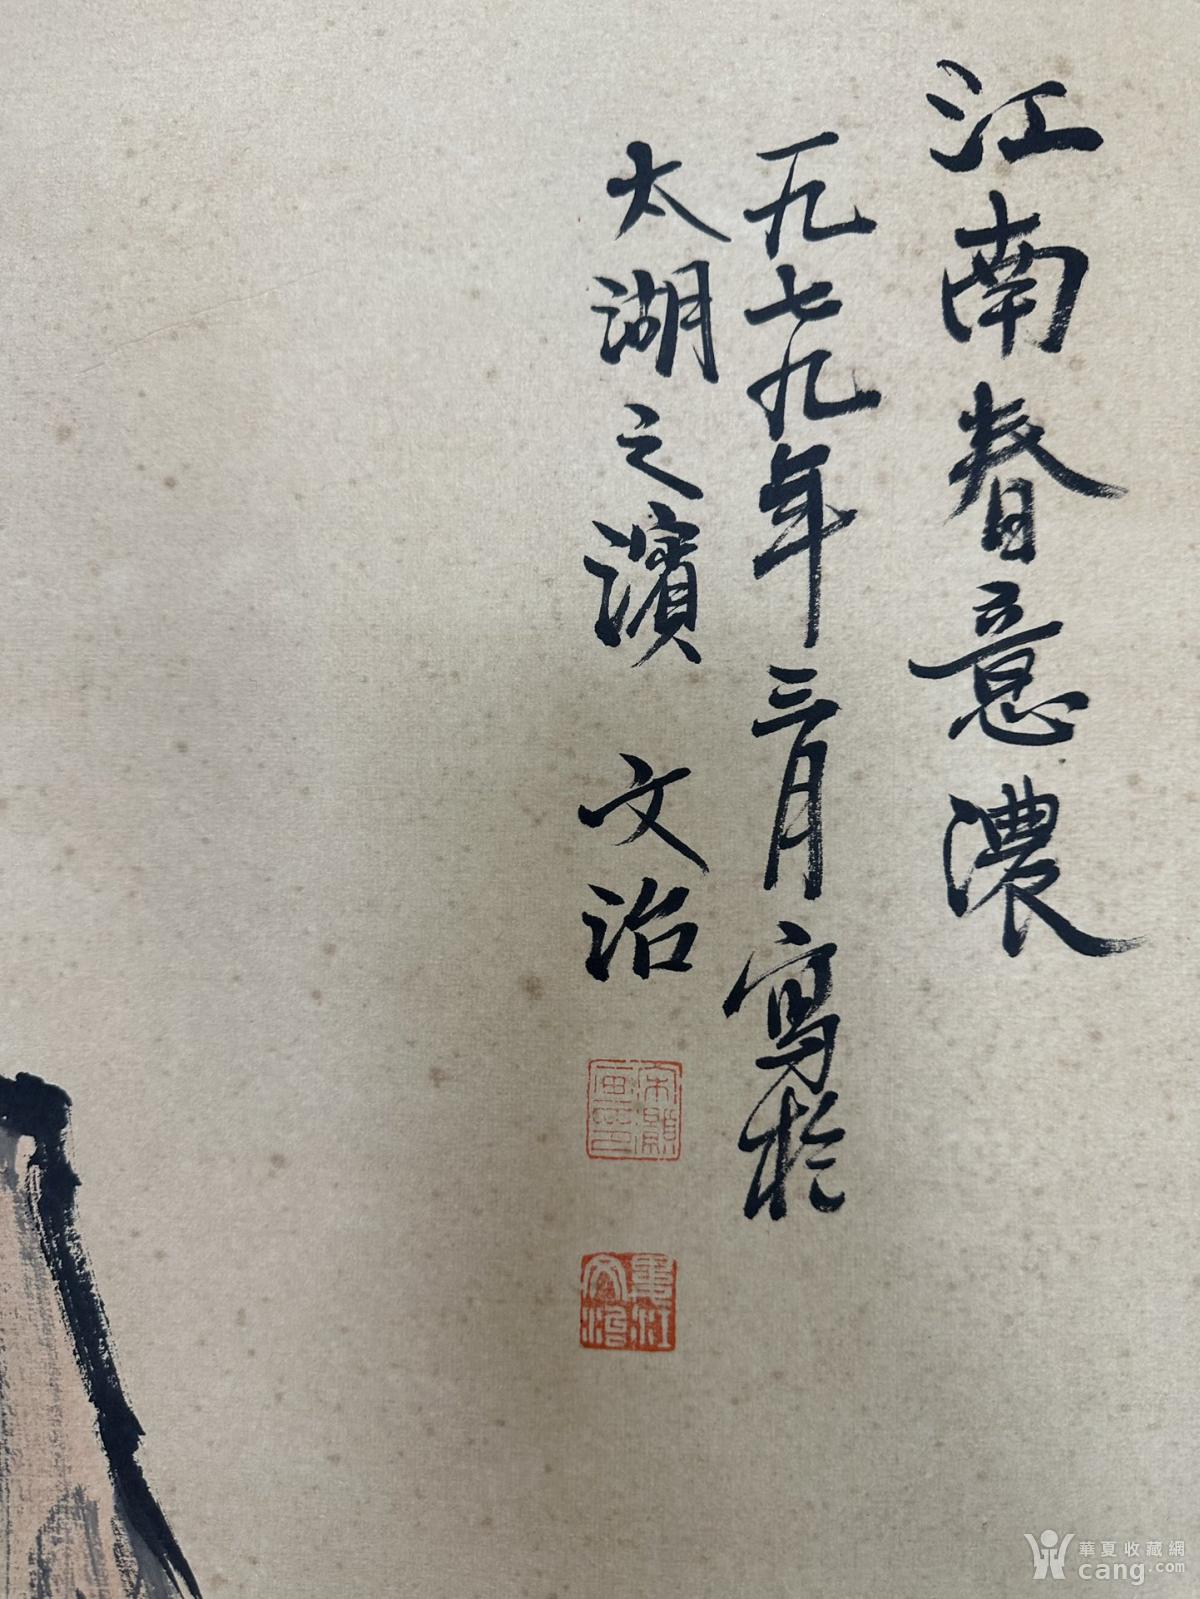 江南春意濃
一九七九年三月寫於
太湖之濱 文治
宋灝畫印
婁江文治
華夏收藏網
cang.com